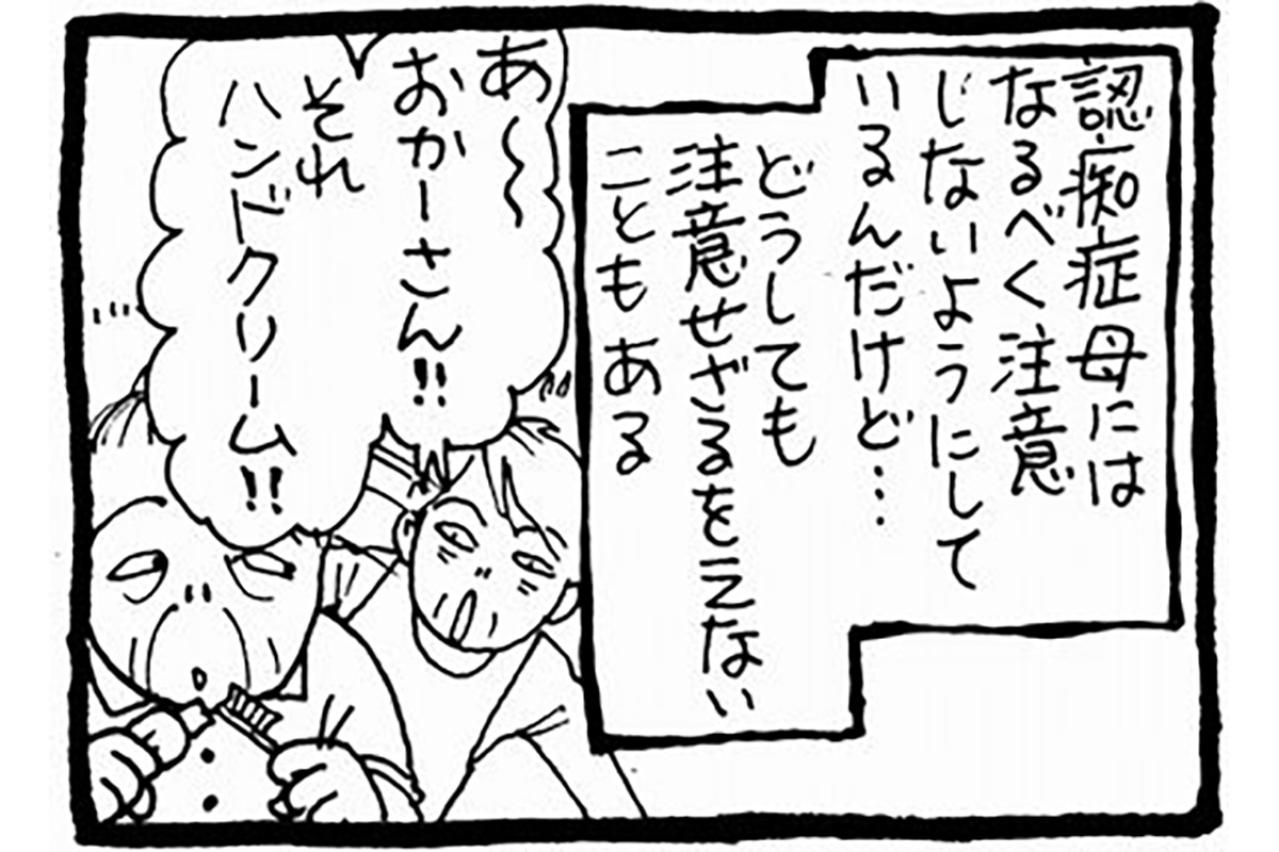 認痴症母には
なるべく注意
じないようにして
いるんだけど…
どうしても
注意せざるをえない
こともある
あ〜
おかーさん!!
それ
ハンドクリーム!!